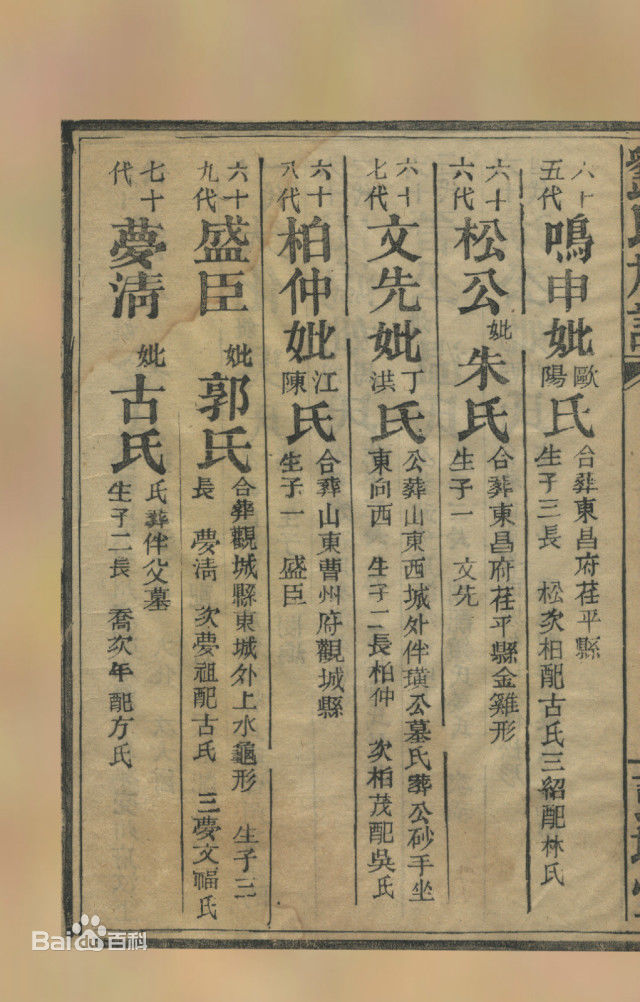 六十五代 鳴申妣歐陽氏 合葬東昌府荏平縣
生子三長 松次柏配古氏三紹配林氏
六十六代 松公妣朱氏 合葬東昌府荏平縣金雞形
生子一 文先
六十七代 文先妣丁洪氏 公葬山東西城外伴璜公墓氏葬公砂手坐
東向西 生子二長柏仲 次柏茂配吳氏
六十八代 柏仲妣江陳氏 合葬山東曹州府觀城縣
生子一 盛臣
六十九代 盛臣妣郭氏 合葬觀城縣東城外上水龜形 生子三
長 夢清 次夢祖配古氏 三夢文
七十代 夢清妣古氏 氏葬伴父墓
生子二長 喬次年配方氏
Bai du 百科